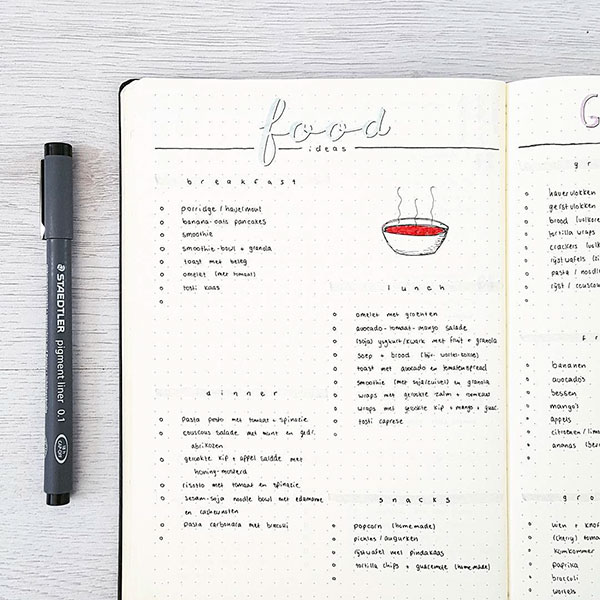 food
ideas
breakfast
porridge / havermout
banana-oats pancakes
smoothie
smoothie-bowl + granola
toast met beleg
omelet (met tomaat)
tosti kaas
lunch
omelet met groenten
avocado-tomaat-mango salade
(soja) yoghurt/kwark met fruit + granola
soep + brood (bijv. wortel-kokos)
toast met avocado en tomatenspread
smoothie (met soja/cuisel) en granola
wraps met gerookte zalm + roomkaas
wraps met gerookte kip + mango + guac.
tosti caprese
dinner
pasta pesto met tomaat + spinazie
couscous salade met munt en gedr.
abrikozen
gerookte kip + appel salade met
honing-mosterd
risotto met tomaat en spinazie
sesam-soja noodle bowl met edamame
en cashewnoten
pasta carbonara met broccoli
snacks
popcorn (homemade)
pickles / augurken
rijstwafel met pindakaas
tortilla chips + guacamole (homemade)
G
gr
havervlokken
gerstvlokken
brood (volkore
tortilla wraps
crackers (volko
rijstwafels (zi
pasta / noodle
rijst / couscou
fr
bananen
avocado's
bessen
mango's
appels
citroenen / limo
ananas (ber
gro
uien + knof
(cherry) toma
komkommer
paprika
broccoli
wortels
STAEDTLER
pigment liner 0.1